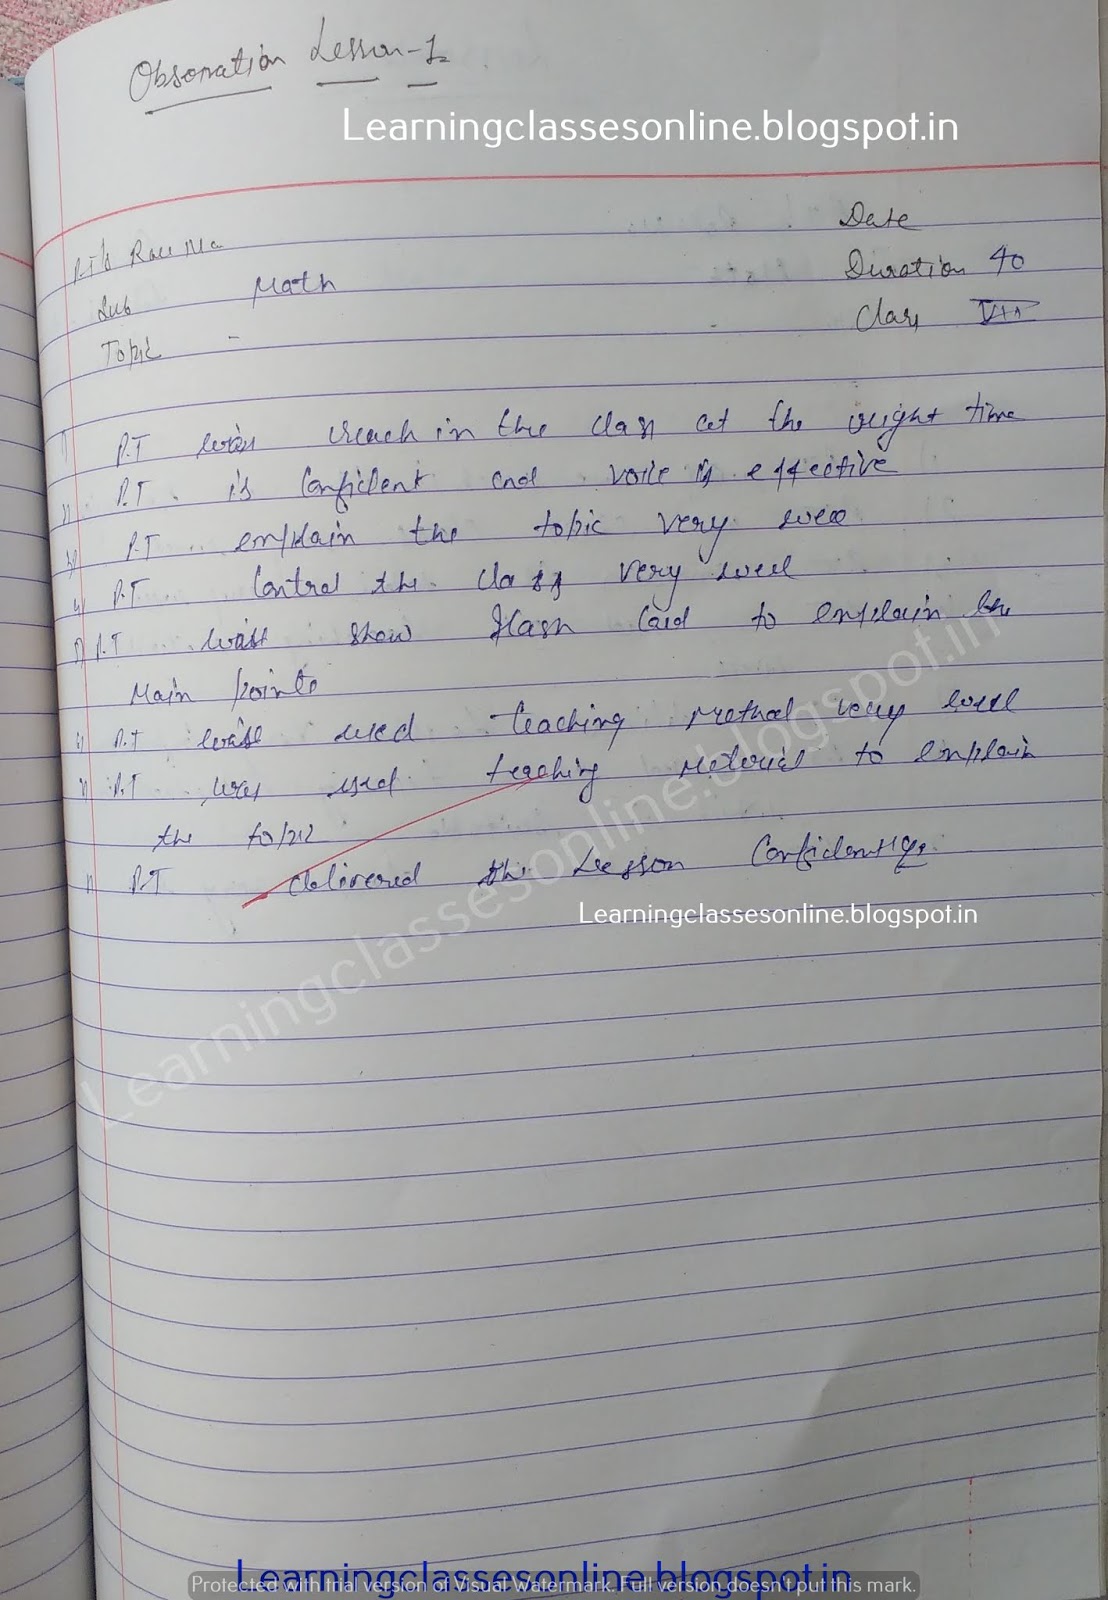 Obsorvation Lesson-1
Learningclassesonline.blogspot.in
Date
P.T's Roll No
Duration 40
Sub Math
Class VIII
Topic -
1) P.T was reach in the class at the right time
2) P.T. is Confident and voice is effective
3) P.T explain the topic very well
4) P.T Control the class very well
5) P.T was show flash Card to explain the
Main points
6) P.T was used teaching method very well
7) P.T was used teaching material to explain
the topic
P.T delivered the Lesson Confidently.
Learningclassesonline.blogspot.in
Learningclassesonline.blogspot.in
Learningclassesonline.blogspot.in
Protected with trial version of Visual Watermark. Full version doesn't put this mark.